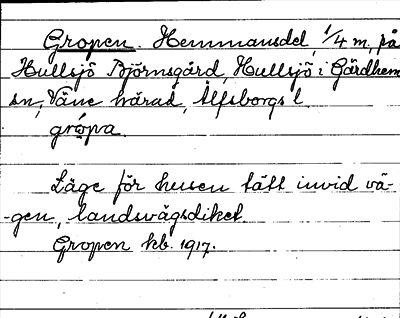 Gropen. Hemmansdel, 1/4 m, på
Hullsjö Björnsgård, Hullsjö i Gärdhem
sn, Väne härad, Älfsborgs l.
grópa.
Läge för husen tätt invid vä-
-gen, landsvägsdiket.
Gropen kb. 1917.